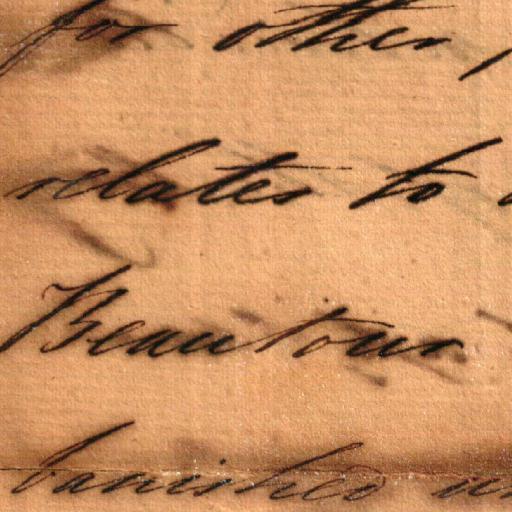 for other
relates to
Beautour
banished